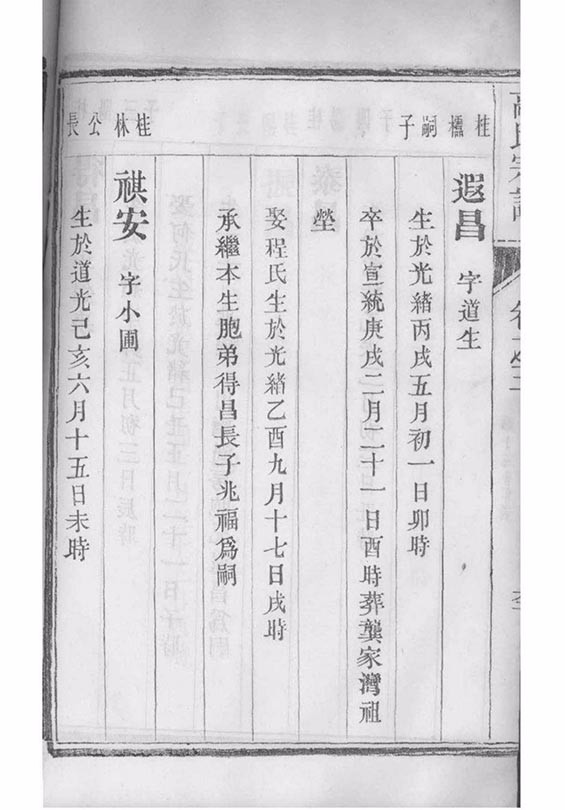 高氏宗譜
桂橋嗣子
遐昌 字道生
生於光緒丙戌五月初一日卯時
卒於宣統庚戌二月二十一日酉時葬龔家灣祖
塋
娶程氏生於光緒乙酉九月十七日戌時
承繼本生胞弟得昌長子兆福爲嗣
桂林公長
祺安 字小圃
生於道光己亥六月十五日未時